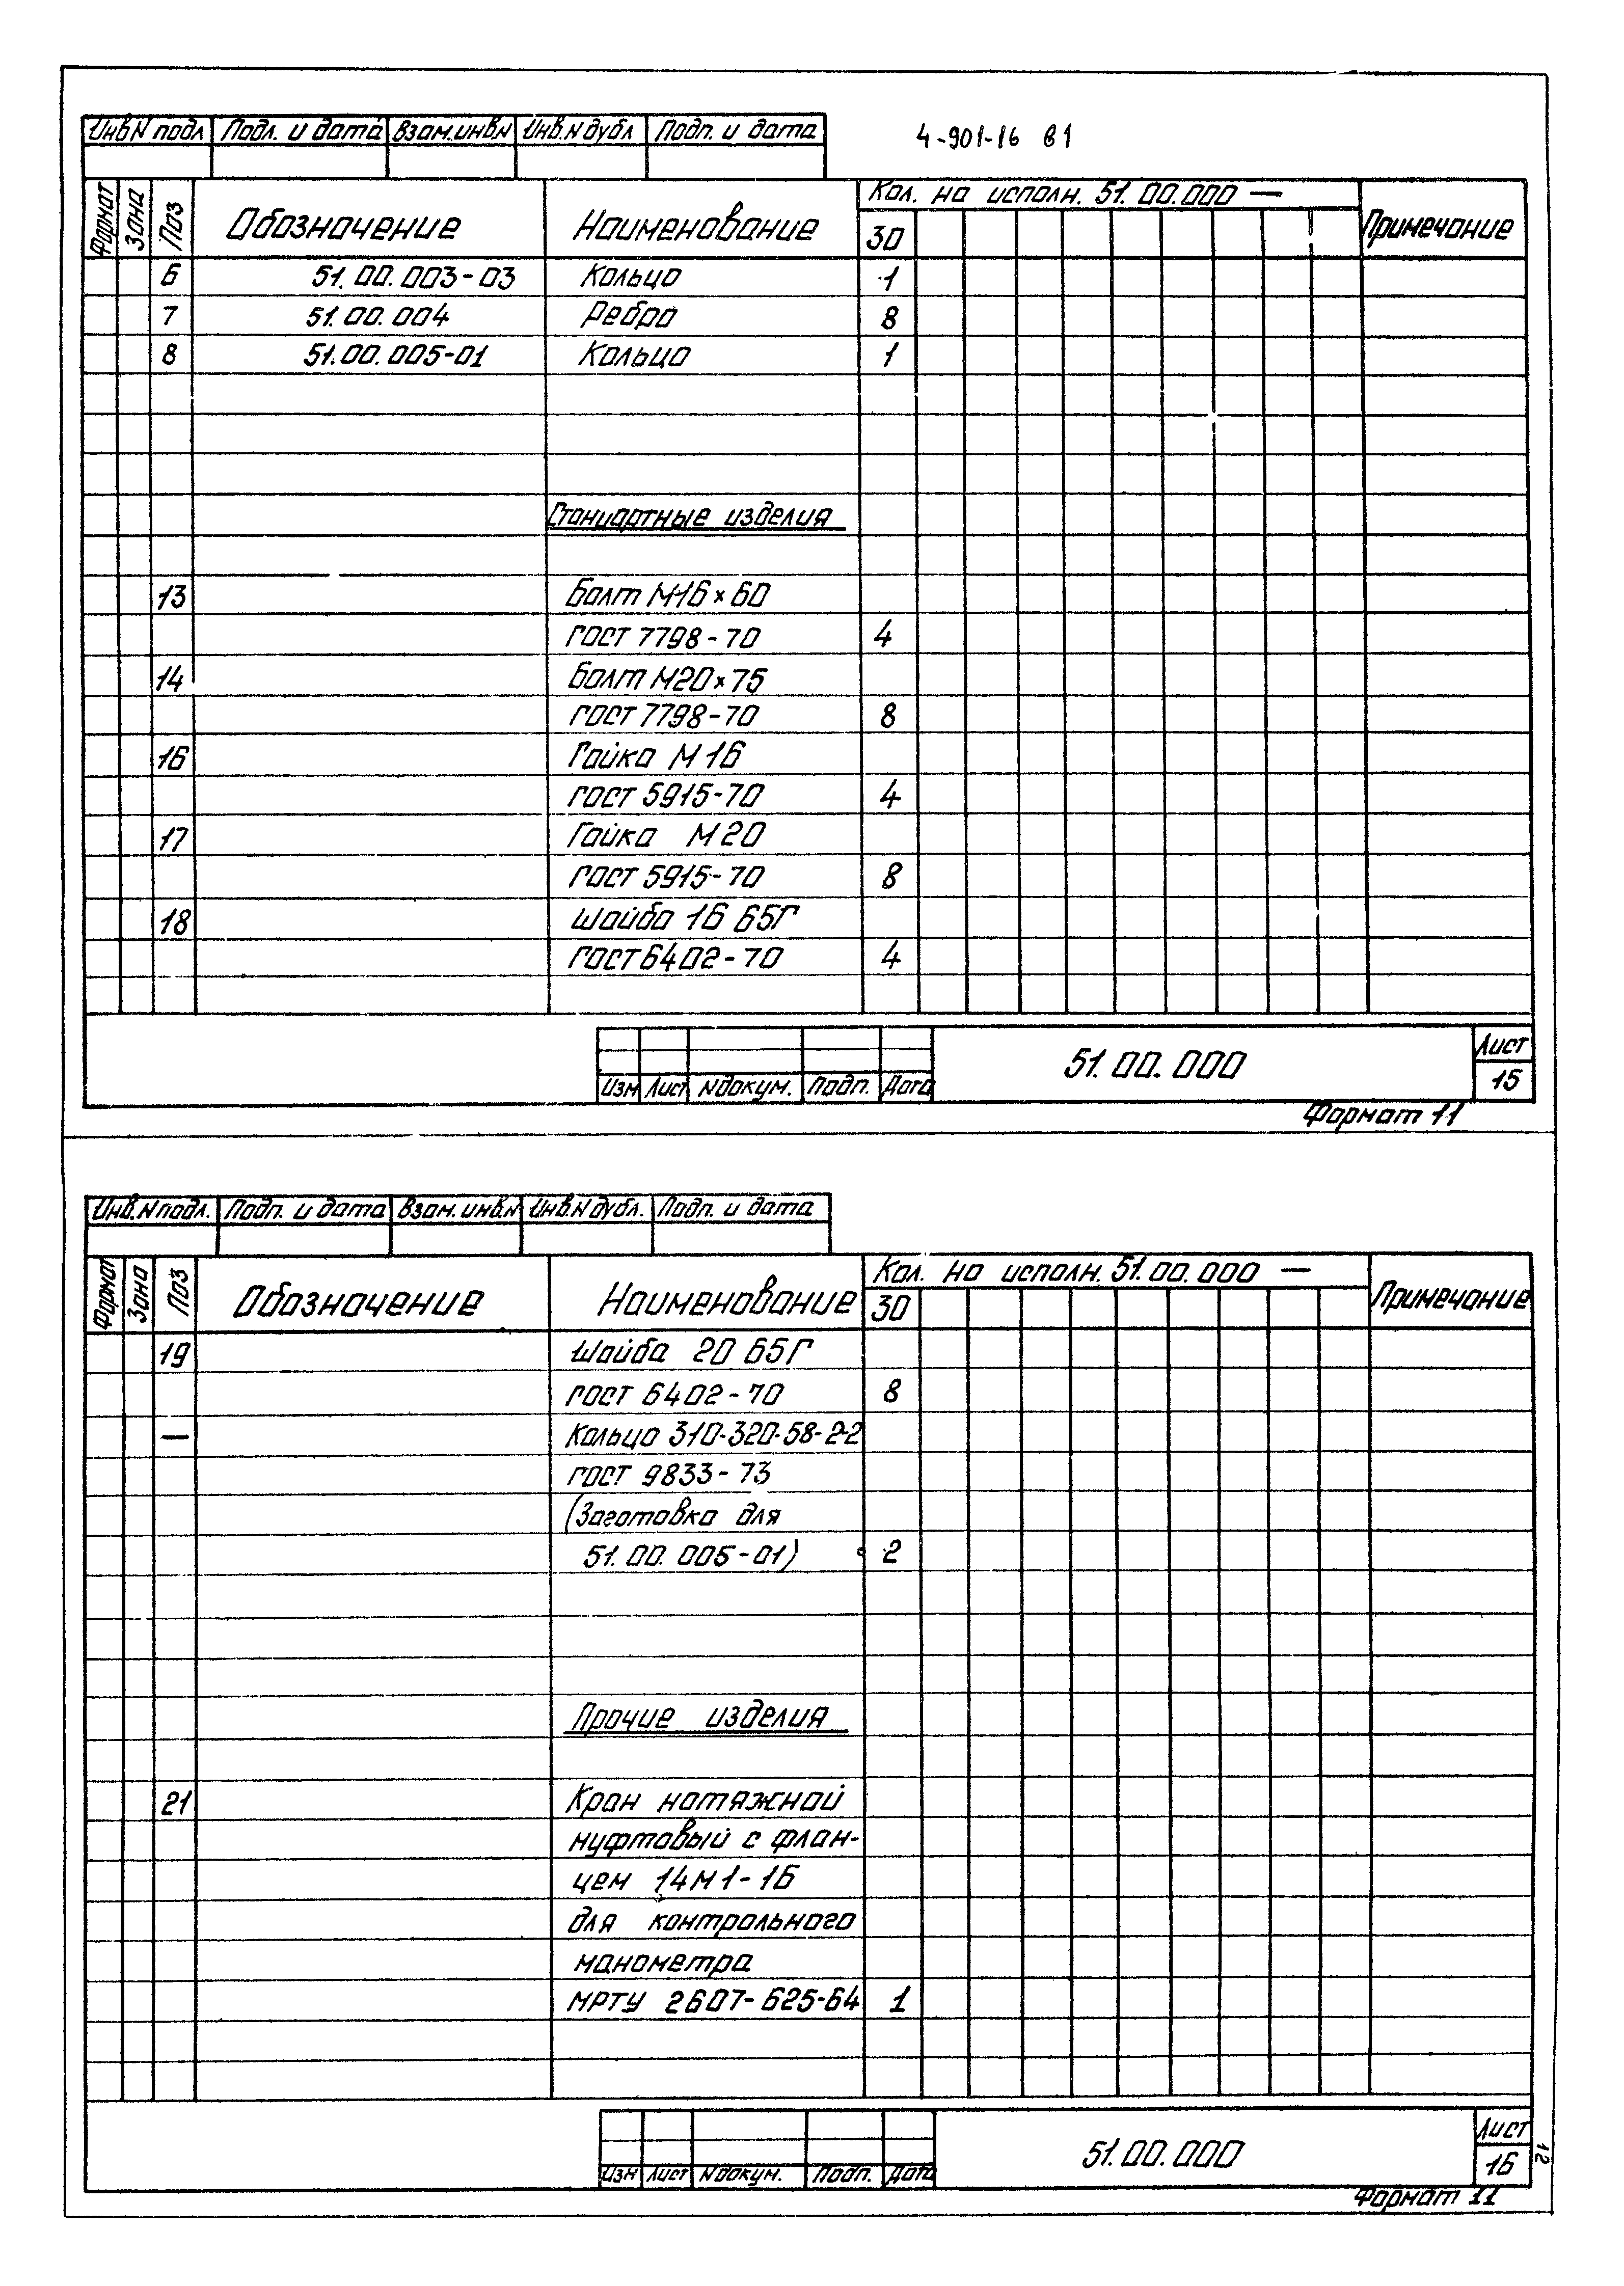 4-901-16 в1
Инв.N подл Подл. и дата Взам.инв.N Инв.N дубл Подп. и дата
Формат Зона Поз Обозначение Наименование Кол. на исполн. 51.00.000 — Примечание
30
6 51.00.003-03 Кольцо 1
7 51.00.004 Ребро 8
8 51.00.005-01 Кольцо 1
Стандартные изделия
13 Болт М16×60
ГОСТ 7798-70 4
14 Болт М20×75
ГОСТ 7798-70 8
16 Гайка М16
ГОСТ 5915-70 4
17 Гайка М20
ГОСТ 5915-70 8
18 Шайба 16 65Г
ГОСТ 6402-70 4
51.00.000 Лист
Изм Лист Nдокум. Подп. Дата 15
Формат 11
Инв.N подл. Подп. и дата Взам. инв.N Инв.N дубл. Подп. и дата
Формат Зона Поз Обозначение Наименование Кол. на исполн. 51.00.000 — Примечание
30
19 Шайба 20 65Г
ГОСТ 6402-70 8
— Кольцо 310-320-58-2-2
ГОСТ 9833-73
(Заготовка для
51.00.005-01) 2
Прочие изделия
21 Кран натяжной
муфтовый с флан-
цем 14М1-16
для контрольного
манометра
МРТУ 2607-625-64 1
51.00.000 Лист
Изм Лист Nдокум. Подп. Дата 16
12
Формат 11